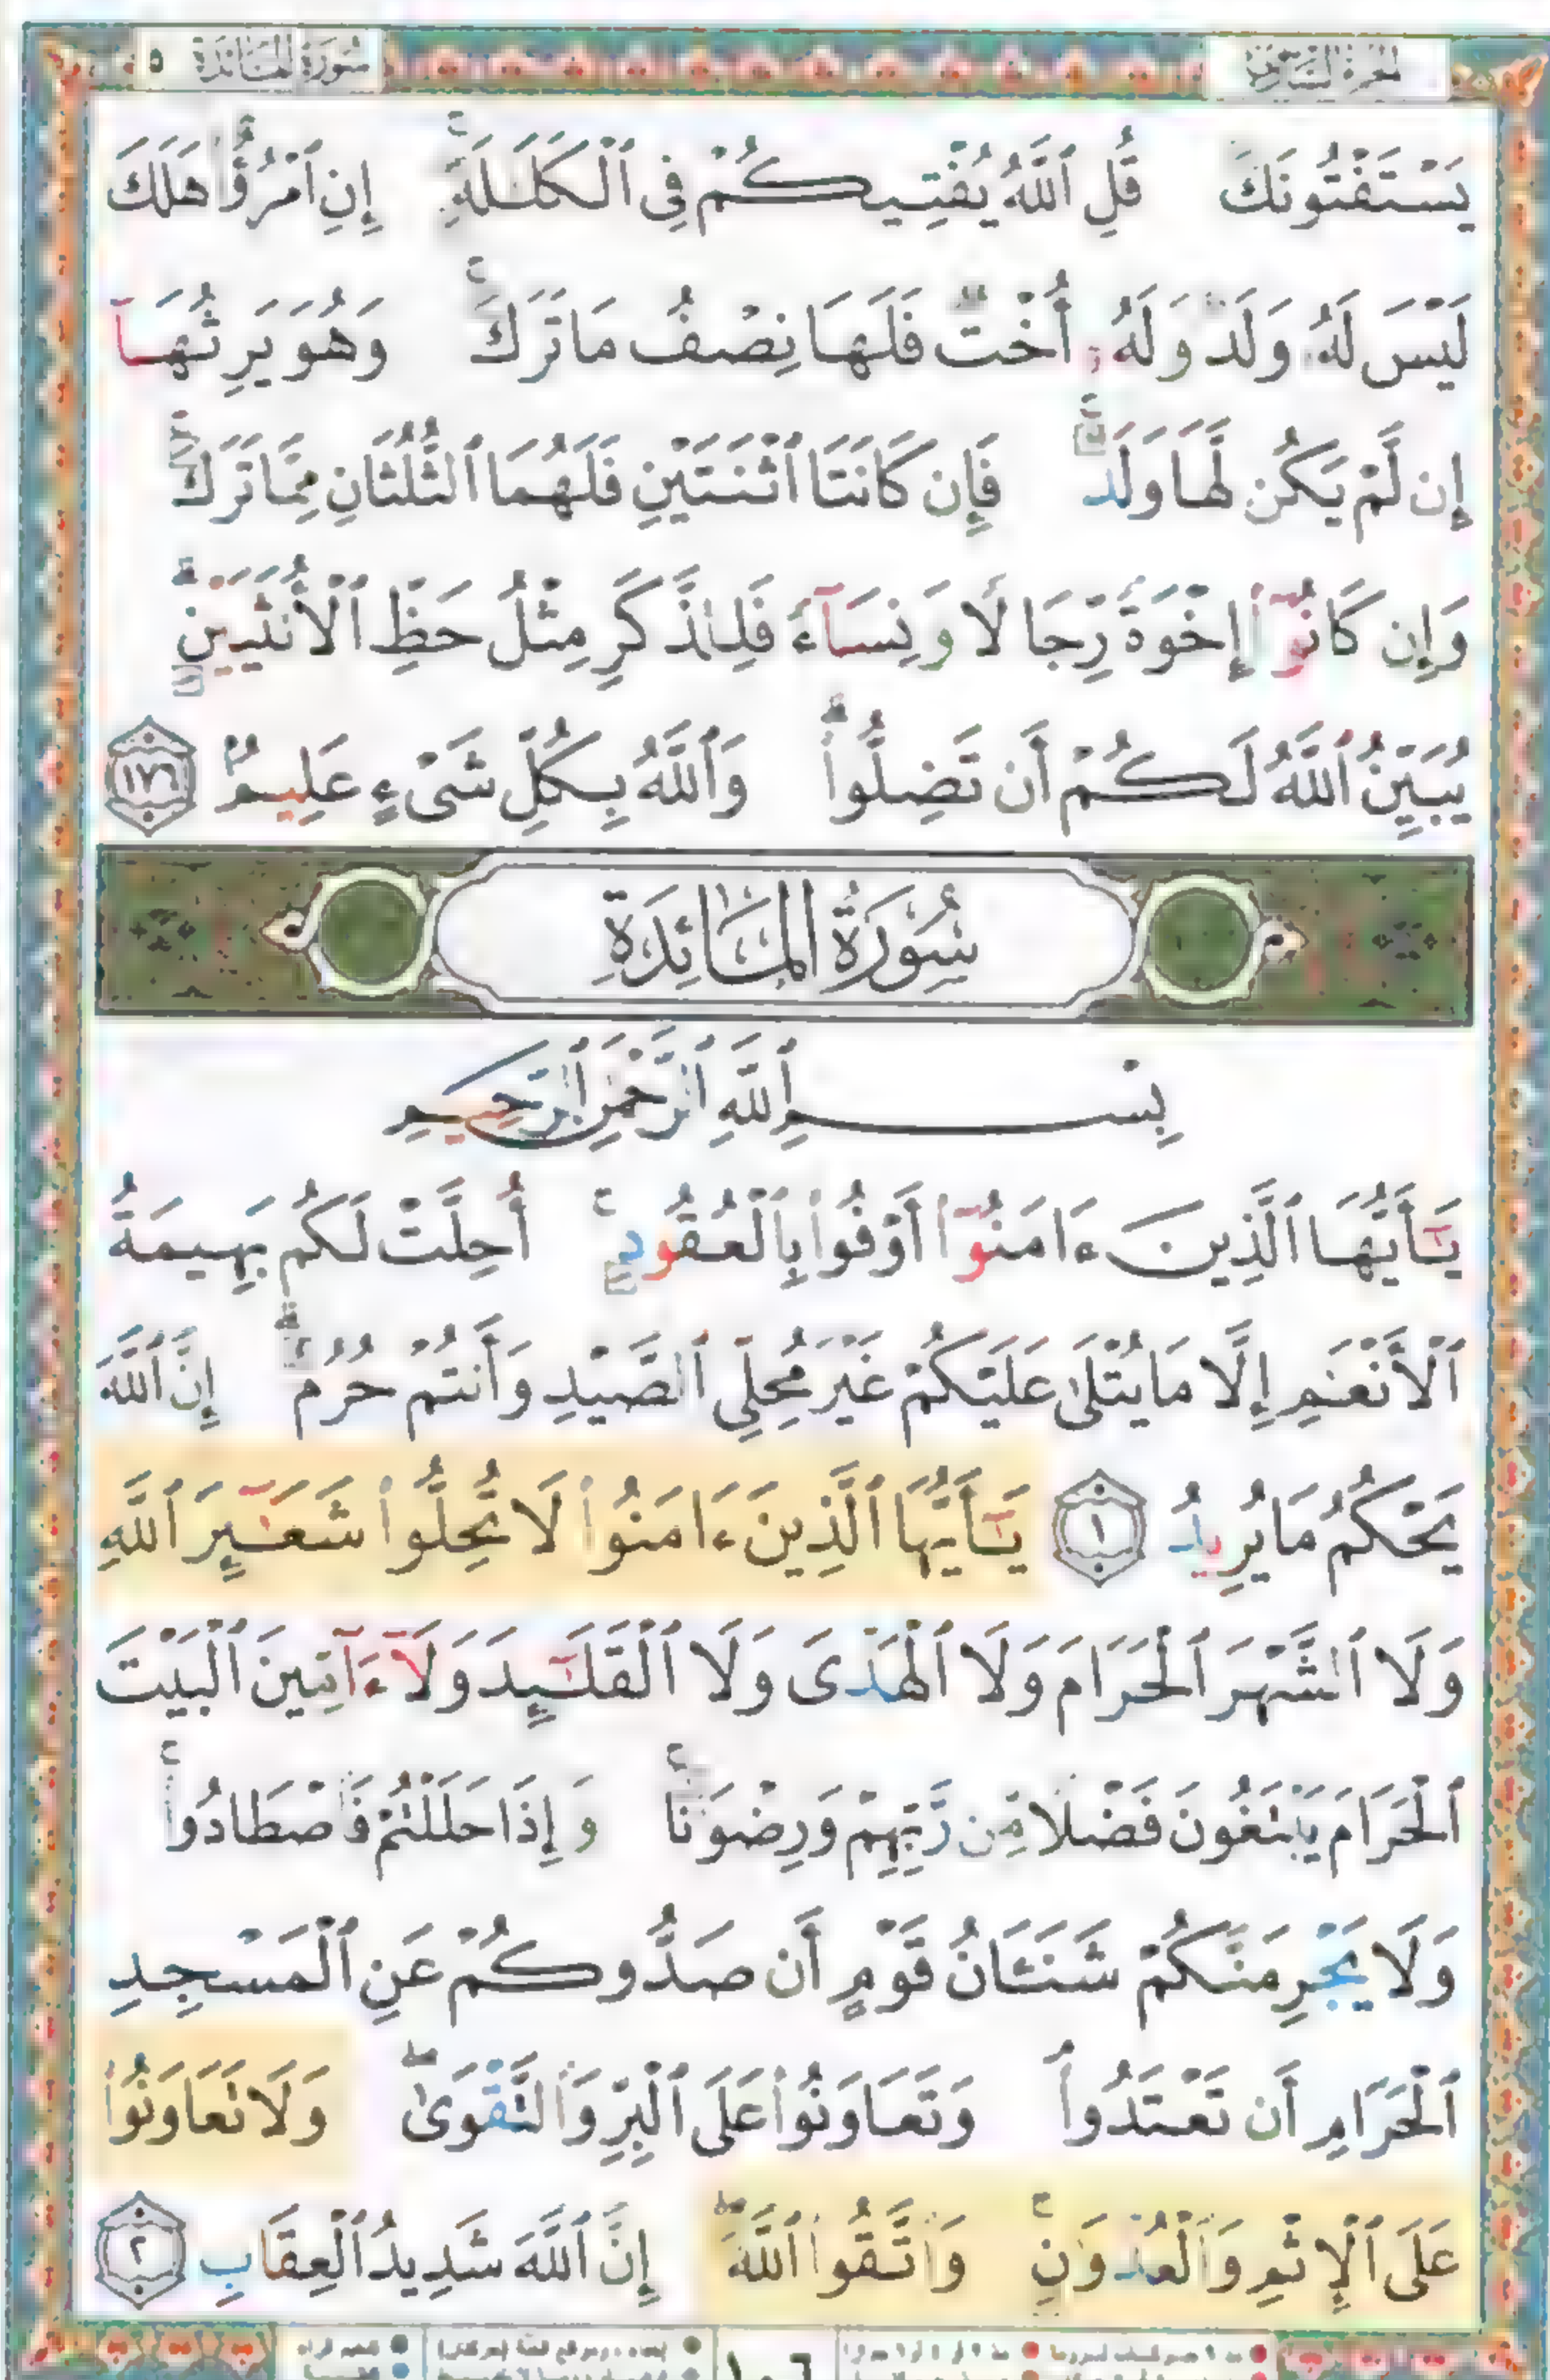 سُورَةُ المَائِدَة ٥
يَسْتَفْتُونَكَ قُلِ ٱللَّهُ يُفْتِيكُمْ فِى ٱلْكَلَٰلَةِۚ إِنِ ٱمْرُؤٌا۟ هَلَكَ
لَيْسَ لَهُۥ وَلَدٌ وَلَهُۥٓ أُخْتٌ فَلَهَا نِصْفُ مَا تَرَكَۚ وَهُوَ يَرِثُهَآ
إِن لَّمْ يَكُن لَّهَا وَلَدٌۚ فَإِن كَانَتَا ٱثْنَتَيْنِ فَلَهُمَا ٱلثُّلُثَانِ مِمَّا تَرَكَۚ
وَإِن كَانُوٓا۟ إِخْوَةً رِّجَالًا وَنِسَآءً فَلِلذَّكَرِ مِثْلُ حَظِّ ٱلْأُنثَيَيْنِۗ
يُبَيِّنُ ٱللَّهُ لَكُمْ أَن تَضِلُّوا۟ۗ وَٱللَّهُ بِكُلِّ شَىْءٍ عَلِيمٌۢ ١٧٦
سُورَةُ المَائِدَةِ
بِسْمِ ٱللَّهِ ٱلرَّحْمَٰنِ ٱلرَّحِيمِ
يَٰٓأَيُّهَا ٱلَّذِينَ ءَامَنُوٓا۟ أَوْفُوا۟ بِٱلْعُقُودِۚ أُحِلَّتْ لَكُم بَهِيمَةُ
ٱلْأَنْعَٰمِ إِلَّا مَا يُتْلَىٰ عَلَيْكُمْ غَيْرَ مُحِلِّى ٱلصَّيْدِ وَأَنتُمْ حُرُمٌۗ إِنَّ ٱللَّهَ
يَحْكُمُ مَا يُرِيدُ ١ يَٰٓأَيُّهَا ٱلَّذِينَ ءَامَنُوا۟ لَا تُحِلُّوا۟ شَعَٰٓئِرَ ٱللَّهِ
وَلَا ٱلشَّهْرَ ٱلْحَرَامَ وَلَا ٱلْهَدْىَ وَلَا ٱلْقَلَٰٓئِدَ وَلَآ ءَآمِّينَ ٱلْبَيْتَ
ٱلْحَرَامَ يَبْتَغُونَ فَضْلًا مِّن رَّبِّهِمْ وَرِضْوَٰنًاۚ وَإِذَا حَلَلْتُمْ فَٱصْطَادُوا۟ۚ
وَلَا يَجْرِمَنَّكُمْ شَنَـَٔانُ قَوْمٍ أَن صَدُّوكُمْ عَنِ ٱلْمَسْجِدِ
ٱلْحَرَامِ أَن تَعْتَدُوا۟ وَتَعَاوَنُوا۟ عَلَى ٱلْبِرِّ وَٱلتَّقْوَىٰۖ وَلَا تَعَاوَنُوا۟
عَلَى ٱلْإِثْمِ وَٱلْعُدْوَٰنِۚ وَٱتَّقُوا۟ ٱللَّهَۖ إِنَّ ٱللَّهَ شَدِيدُ ٱلْعِقَابِ ٢
١٠٦